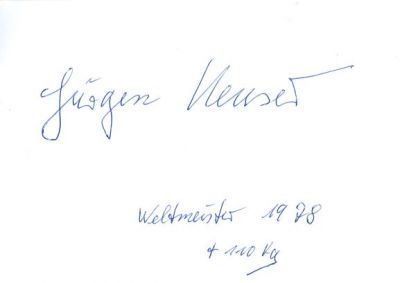 Jürgen Heuser
Weltmeister 1978
+ 110 Kg